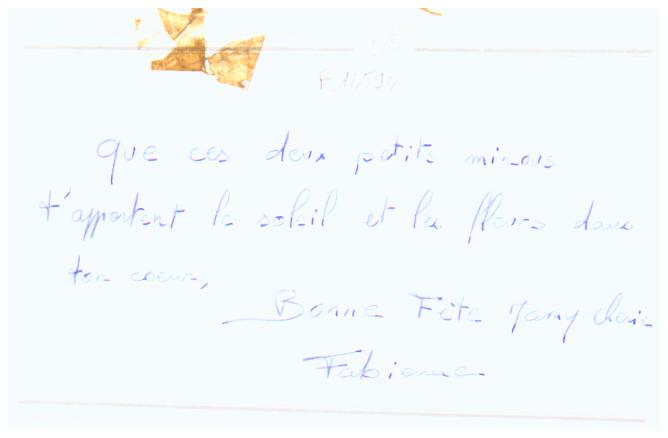 que ces deux petits minous
t'apportent le soleil et les fleurs dans
ton coeur,
Bonne Fête Mamy chérie
Fabienne